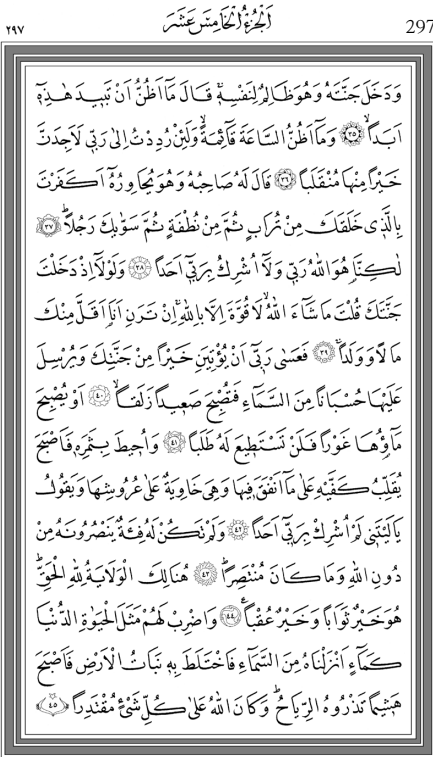 ٢٩٧ اَلْجُزْءُ الْخَامِسَ عَشَرَ 297
وَدَخَلَ جَنَّتَهُ وَهُوَ ظَالِمٌ لِنَفْسِهٖۚ قَالَ مَٓا اَظُنُّ اَنْ تَب۪يدَ هٰذِه۪ٓ
اَبَداًۙ ﴿٣٥﴾ وَمَٓا اَظُنُّ السَّاعَةَ قَٓائِمَةًۙ وَلَئِنْ رُدِدْتُ اِلٰى رَبّ۪ي لَاَجِدَنَّ
خَيْراً مِنْهَا مُنْقَلَباًۚ ﴿٣٦﴾ قَالَ لَهُ صَاحِبُهُ وَهُوَ يُحَاوِرُهُٓ اَكَفَرْتَ
بِالَّذ۪ي خَلَقَكَ مِنْ تُرَابٍ ثُمَّ مِنْ نُطْفَةٍ ثُمَّ سَوّٰيكَ رَجُلاًۜ ﴿٣٧﴾
لٰكِنَّا۬ هُوَ اللّٰهُ رَبّ۪ي وَلَٓا اُشْرِكُ بِرَبّ۪ٓي اَحَداً ﴿٣٨﴾ وَلَوْلَٓا اِذْ دَخَلْتَ
جَنَّتَكَ قُلْتَ مَا شَٓاءَ اللّٰهُۙ لَا قُوَّةَ اِلَّا بِاللّٰهِۚ اِنْ تَرَنِ اَنَا۬ اَقَلَّ مِنْكَ
مَالاً وَوَلَداًۚ ﴿٣٩﴾ فَعَسٰى رَبّ۪ٓي اَنْ يُؤْتِيَنِ خَيْراً مِنْ جَنَّتِكَ وَيُرْسِلَ
عَلَيْهَا حُسْبَاناً مِنَ السَّمَٓاءِ فَتُصْبِحَ صَع۪يداً زَلَقاًۙ ﴿٤٠﴾ اَوْ يُصْبِحَ
مَٓاؤُ۬هَا غَوْراً فَلَنْ تَسْتَط۪يعَ لَهُ طَلَباً ﴿٤١﴾ وَاُح۪يطَ بِثَمَرِه۪ فَاَصْبَحَ
يُقَلِّبُ كَفَّيْهِ عَلٰى مَٓا اَنْفَقَ ف۪يهَا وَهِيَ خَاوِيَةٌ عَلٰى عُرُوشِهَا وَيَقُولُ
يَا لَيْتَن۪ي لَمْ اُشْرِكْ بِرَبّ۪ٓي اَحَداً ﴿٤٢﴾ وَلَمْ تَكُنْ لَهُ فِئَةٌ يَنْصُرُونَهُ مِنْ
دُونِ اللّٰهِ وَمَا كَانَ مُنْتَصِراًۜ ﴿٤٣﴾ هُنَالِكَ الْوَلَايَةُ لِلّٰهِ الْحَقِّۜ
هُوَ خَيْرٌ ثَوَاباً وَخَيْرٌ عُقْباً۟ ﴿٤٤﴾ وَاضْرِبْ لَهُمْ مَثَلَ الْحَيٰوةِ الدُّنْيَا
كَمَٓاءٍ اَنْزَلْنَاهُ مِنَ السَّمَٓاءِ فَاخْتَلَطَ بِه۪ نَبَاتُ الْاَرْضِ فَاَصْبَحَ
هَش۪يماً تَذْرُوهُ الرِّيَاحُۜ وَكَانَ اللّٰهُ عَلٰى كُلِّ شَيْءٍ مُقْتَدِراً ﴿٤٥﴾